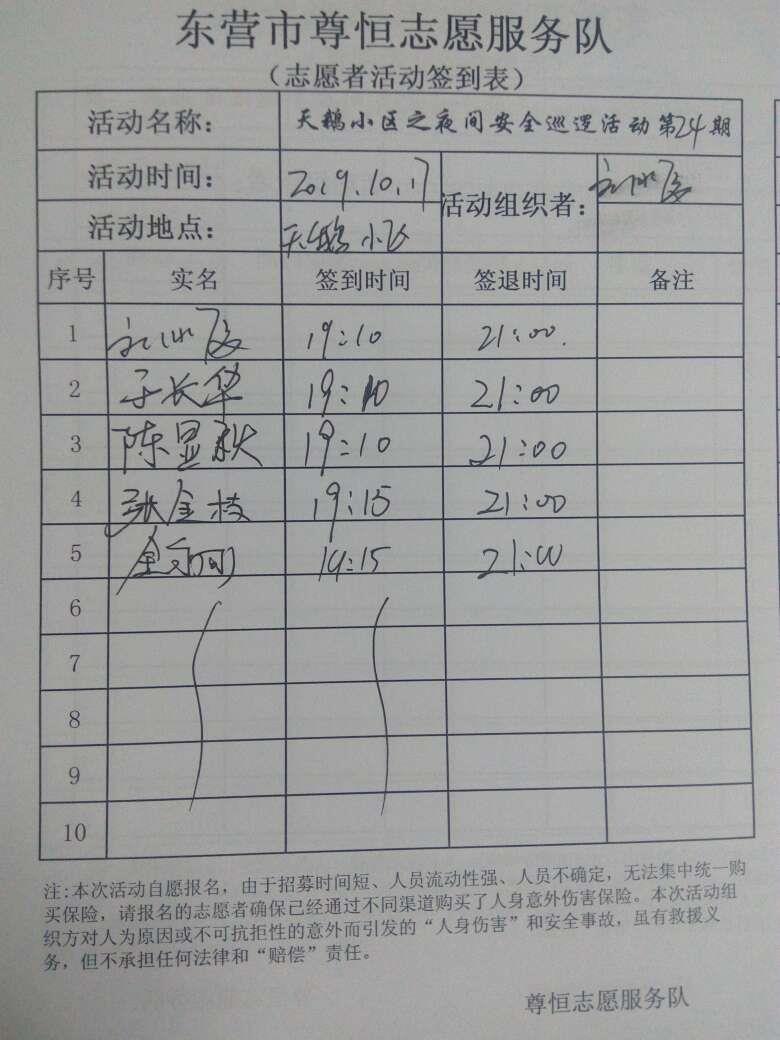 东营市尊恒志愿服务队
（志愿者活动签到表）
活动名称： 天鹅小区之夜间安全巡逻活动第24期
活动时间： 2019.10.17 活动组织者：
活动地点： 天鹅小区
序号 实名 签到时间 签退时间 备注
1 19:10 21:00.
2 于长华 19:10 21:00
3 陈显秋 19:10 21:00
4 张金枝 19:15 21:00
5 19:15 21:00
6
7
8
9
10
注:本次活动自愿报名，由于招募时间短、人员流动性强、人员不确定，无法集中统一购
买保险，请报名的志愿者确保已经通过不同渠道购买了人身意外伤害保险。本次活动组
织方对人为原因或不可抗拒性的意外而引发的“人身伤害”和安全事故，虽有救援义
务，但不承担任何法律和“赔偿”责任。
尊恒志愿服务队